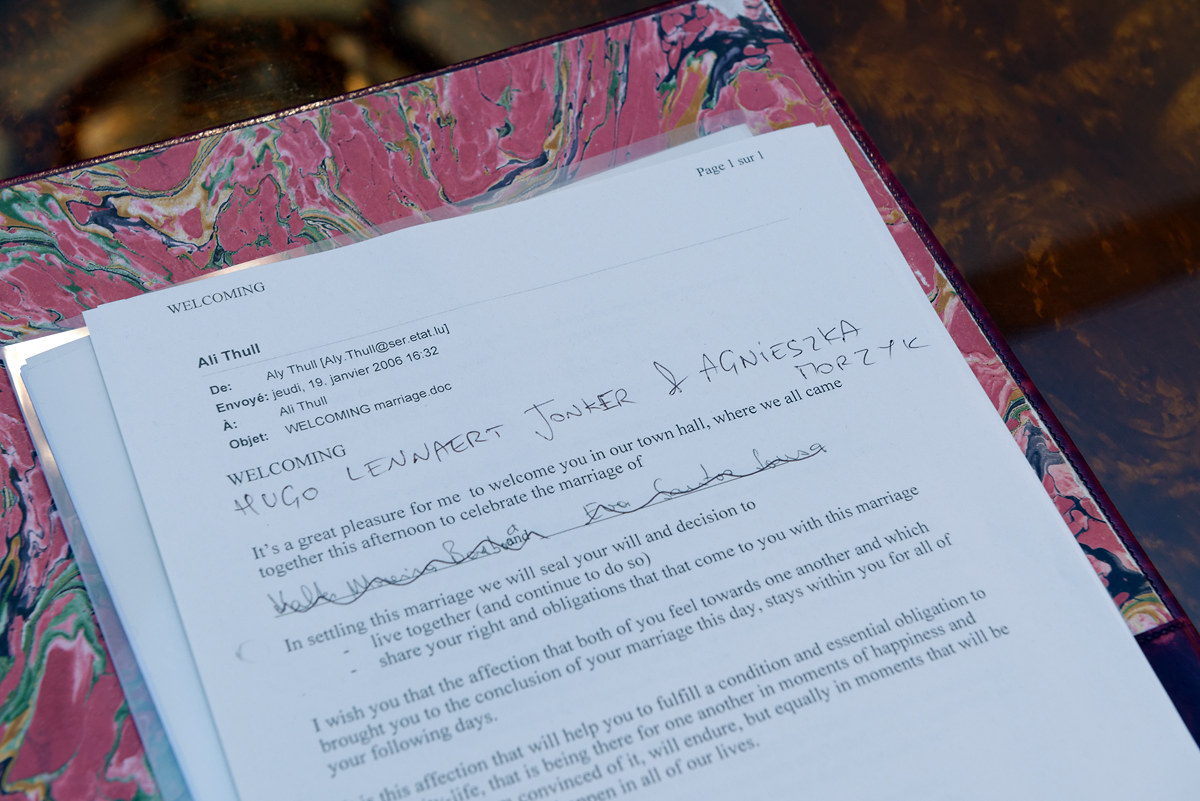 Page 1 sur 1
WELCOMING
Ali Thull
De: Aly Thull [Aly.Thull@ser.etat.lu]
Envoyé: jeudi, 19. janvier 2006 16:32
À: Ali Thull
Objet: WELCOMING marriage.doc
WELCOMING
HUGO LENNAERT JONKER & AGNIESZKA
MORZYK
It's a great pleasure for me to welcome you in our town hall, where we all came
together this afternoon to celebrate the marriage of
In settling this marriage we will seal your will and decision to
- live together (and continue to do so)
- share your right and obligations that that come to you with this marriage
I wish you that the affection that both of you feel towards one another and which
brought you to the conclusion of your marriage this day, stays within you for all of
your following days.
this affection that will help you to fulfill a condition and essential obligation to
-life, that is being there for one another in moments of happiness and
convinced of it, will endure, but equally in moments that will be
in all of our lives.